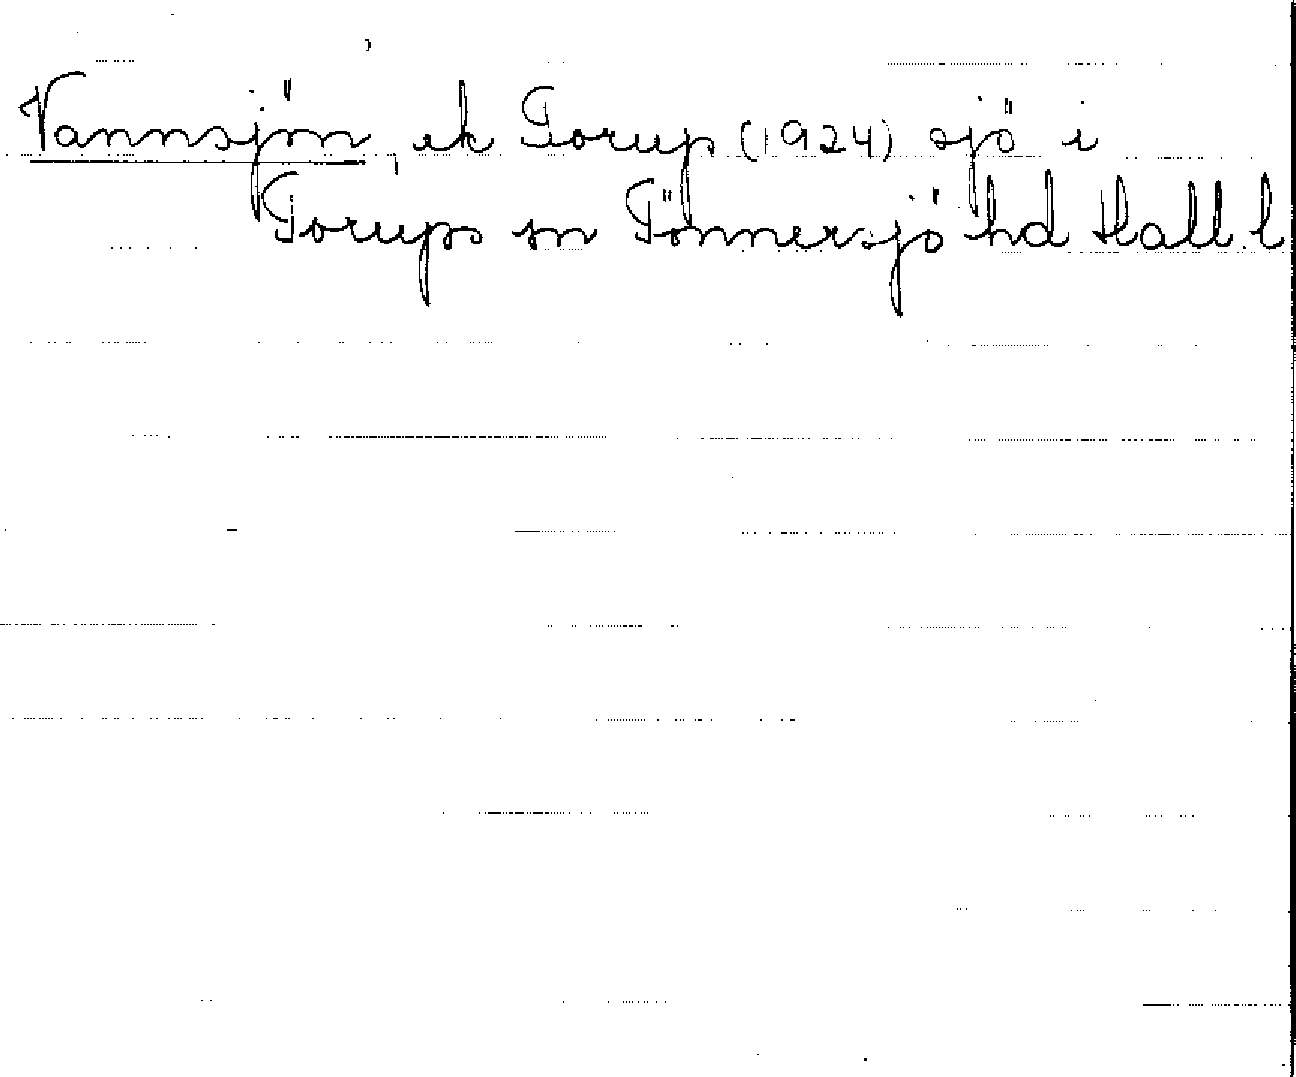 Vannsjön, ek Torup (1924) sjö i
Torups sn Tönnersjö hd Hall. l